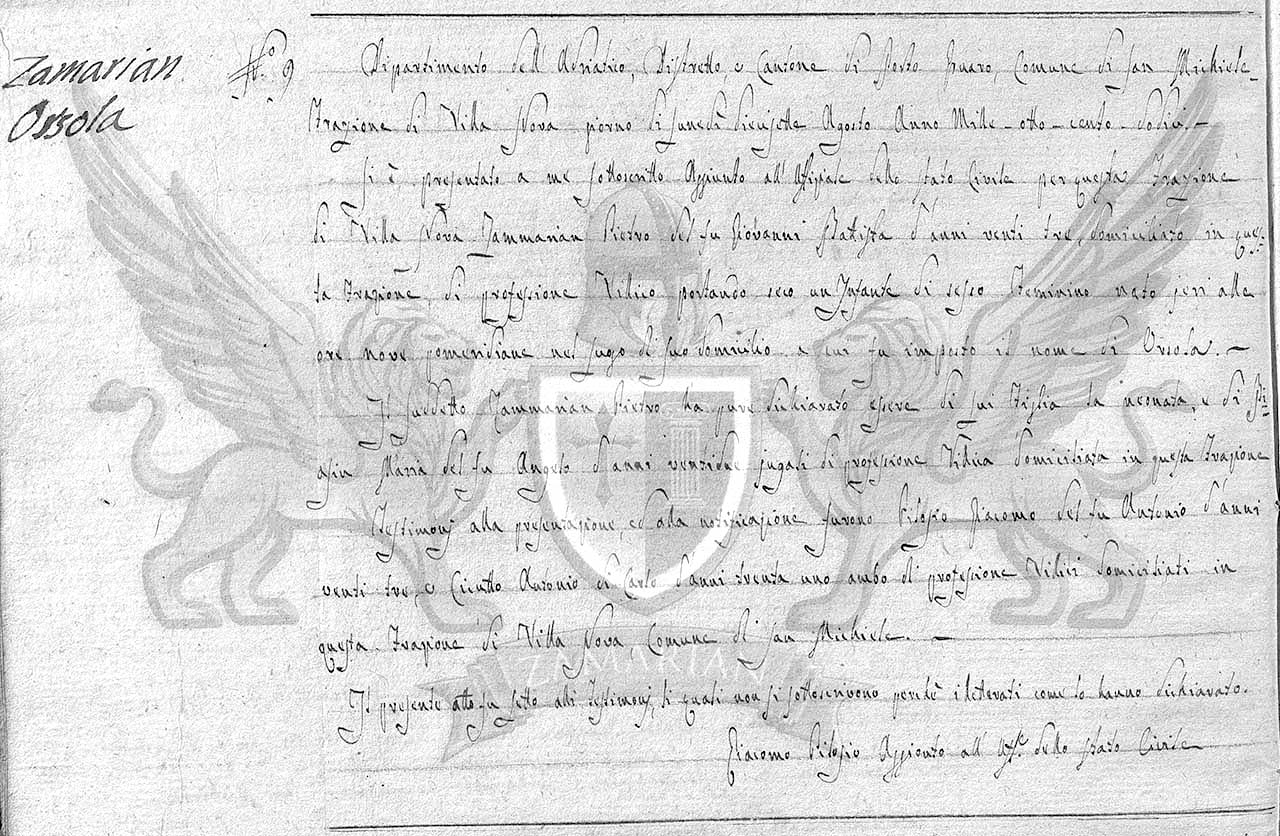 Zamarian
Orsola
N.º 9
Dipartimento dell Adriatico, Distretto, e Cantone di Porto Gruaro, Comune di San Michiele
Frazione di Villa Nova giorno di Lunedì diecisette Agosto Anno Mille-otto-cento-dodici.-
Si è presentato a me sottoscritto Aggiunto all Uffiziale dello Stato Civile per questa Frazione
di Villa Nova Zammarian Pietro del fu Giovanni Batista d'anni venti tre, domiciliato in ques-
ta Frazione, di professione Villico portando seco un Infante di sesso Feminino nato jeri alle
ore nove pomeridiane nel luogo di suo domicilio a cui fu imposto il nome di Orsola.-
Il suddetto Zammarian Pietro ha pure dichiarato essere di lui Figlia la neonata, e di
Maria del fu Angelo d'anni ventidue jugali di professione Villica domiciliata in questa Frazione
Testimonj alla presentazione, ed alla notificazione furono Pilosio Giacomo del fu Antonio d'anni
venti tre, e Cicutto Antonio di Carlo d'anni trenta uno ambo di professione Villici domiciliati in
questa Frazione di Villa Nova Comune di San Michiele.-
Il presente atto fu letto alli Testimonj, li quali non si sottoscrivono perchè iletterati come lo hanno dichiarato.
Giacomo Pilosio Aggionto all Uff.e dello Stato Civile
ZAMARIAN